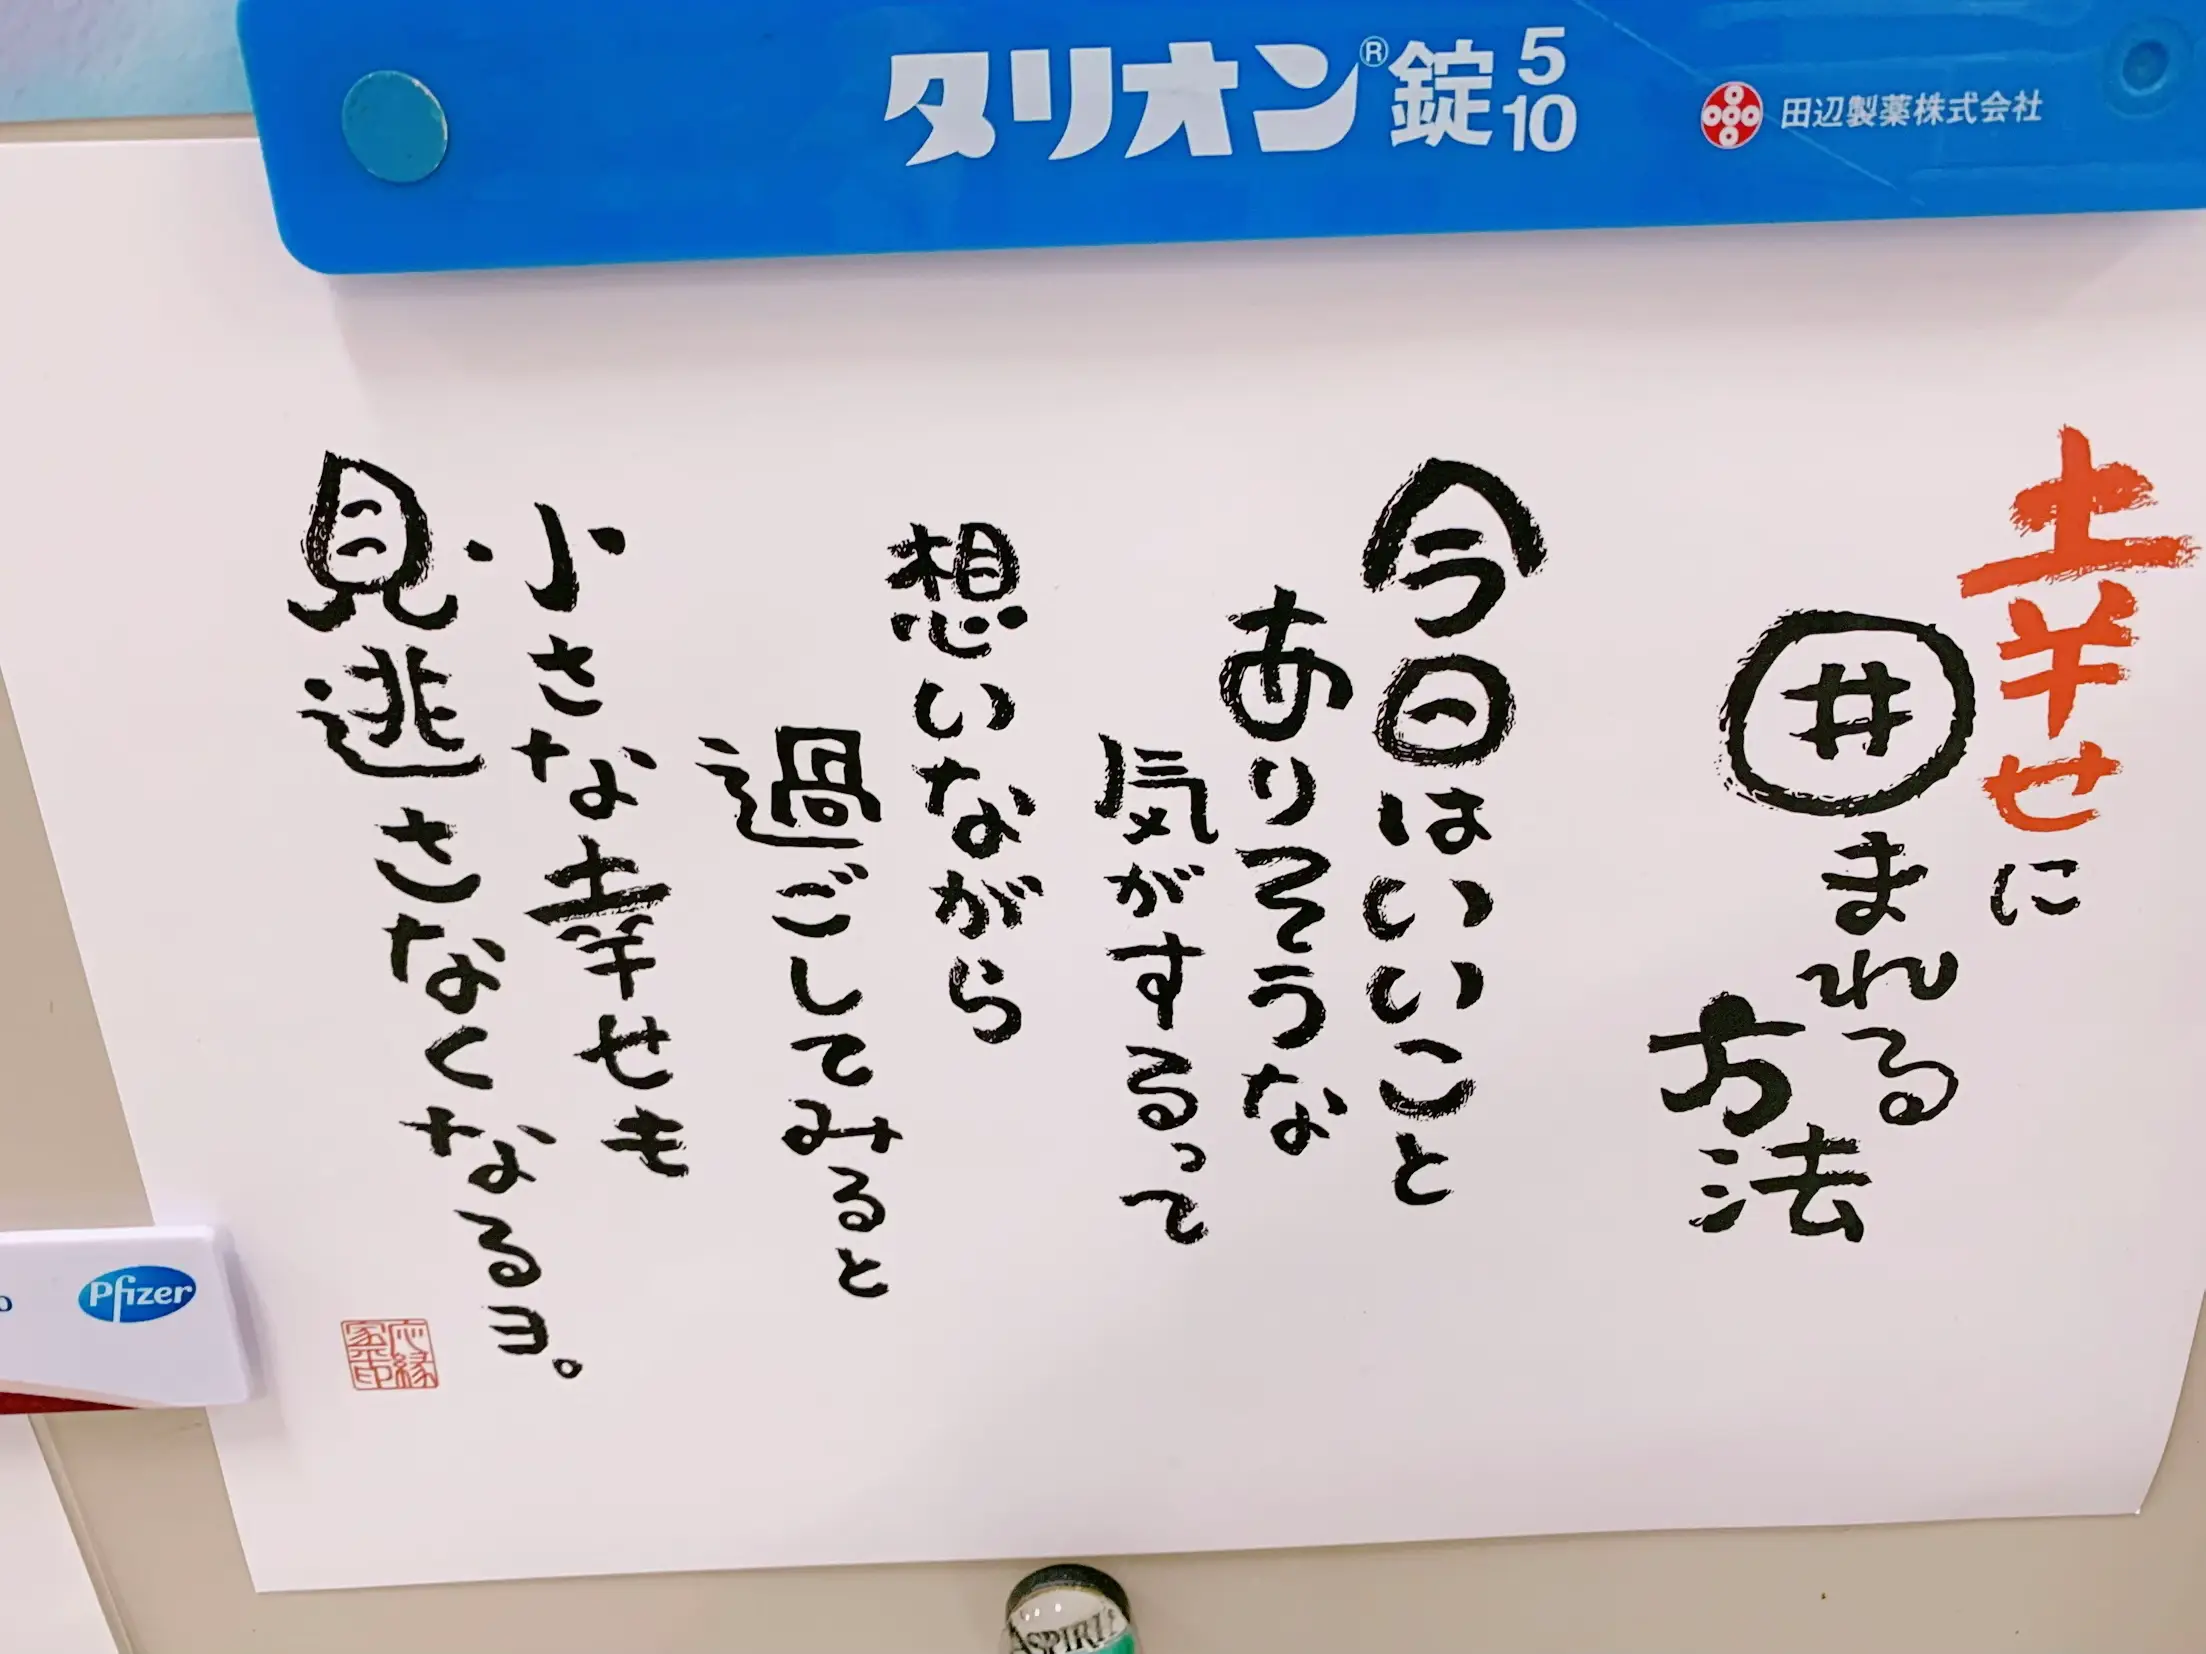 タリオン®錠 5 10
田辺製薬株式会社
幸せに
囲まれる
方法
今日はいいこと
ありそうな
気がするって
想いながら
過ごしてみると
小さな幸せも
見逃さなくなるヨ。
応縁
家平印
Pfizer
ASPIRI